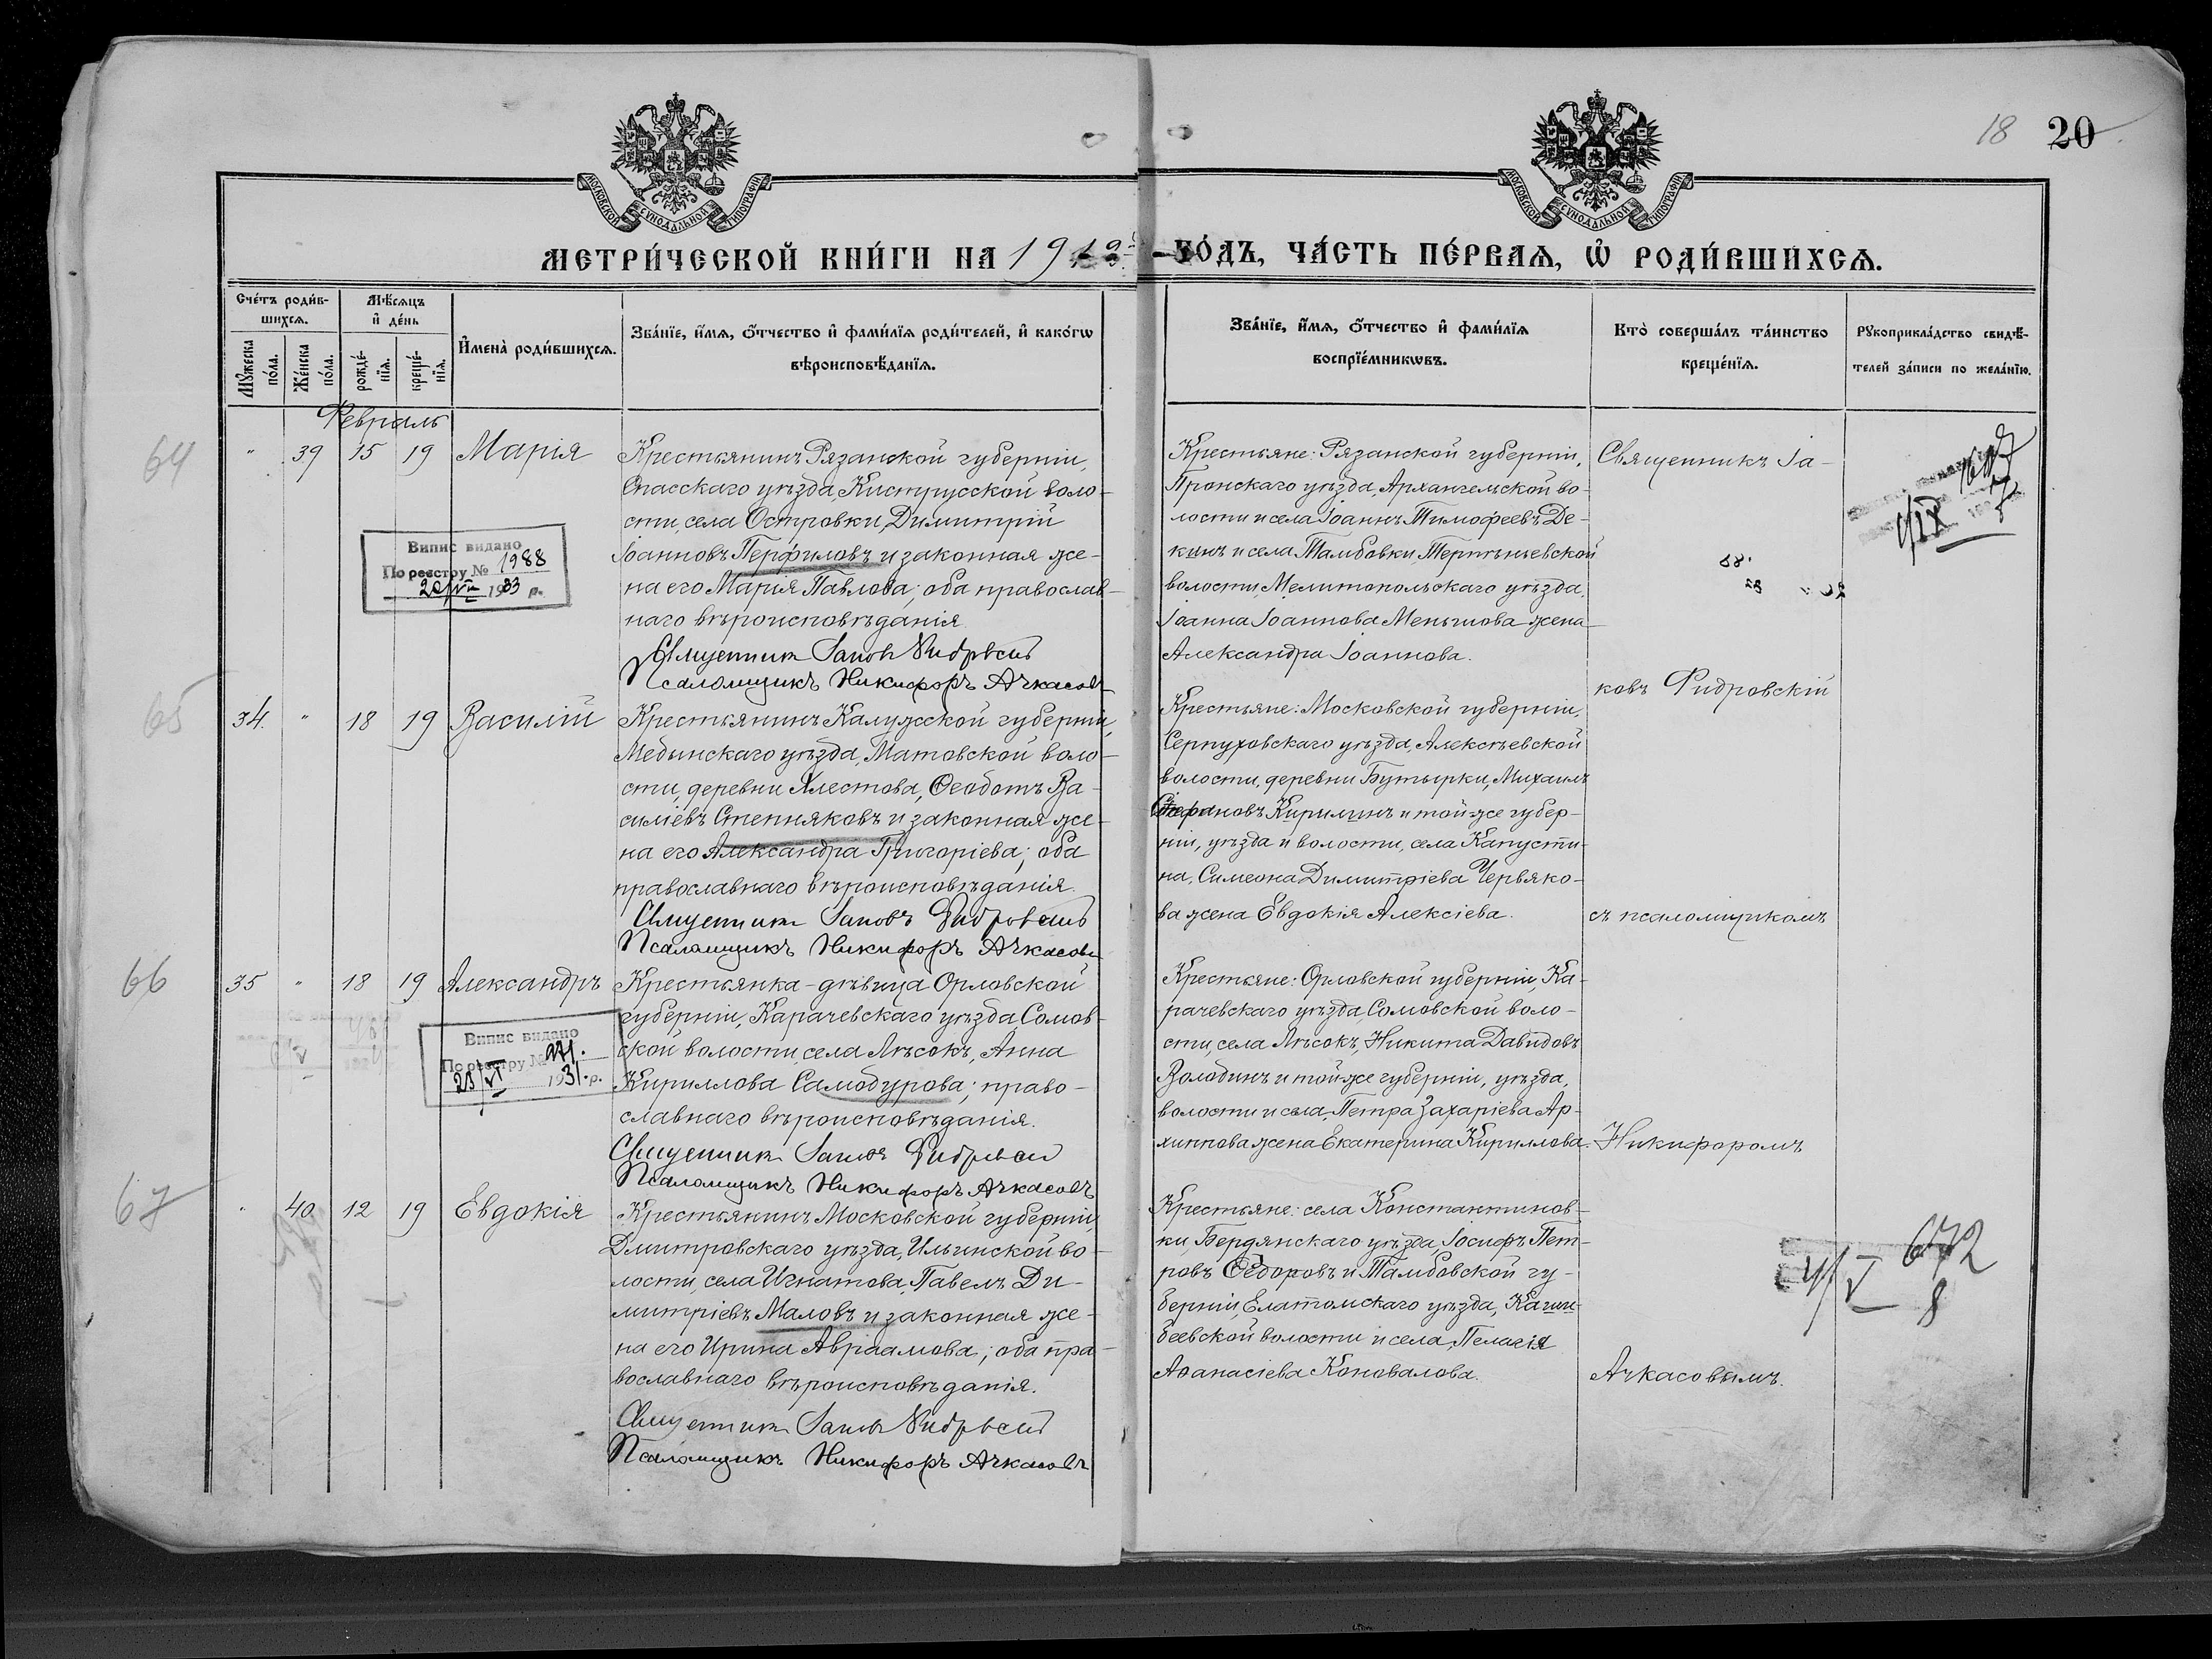 18 20
МОСКОВСКОЙ СУНОДАЛЬНОЙ ТИПОГРАФІИ
МОСКОВСКОЙ СУНОДАЛЬНОЙ ТИПОГРАФІИ
МЕТРИ́ЧЕСКОЙ КНИ́ГИ НА 1912 ГО́ДЪ, ЧА́СТЬ ПЕ́РВАѦ, Ѡ҆ РОДИ́ВШИХСѦ.
Сче́тъ роди́в-
шихсѧ.
Мѹ́жеска по́ла.
Же́нска по́ла.
Мѣ́сѧцъ
и҆ де́нь
рожде́-
нїѧ.
креще́-
нїѧ.
И҆мена̀ роди́вшихсѧ.
Зва́нїе, и҆́мѧ, ѻ҆́тчество и҆ фами́лїѧ роди́телей, и҆ како́гѡ
вѣроисповѣ́данїѧ.
Зва́нїе, и҆́мѧ, ѻ҆́тчество и҆ фами́лїѧ
воспрїе́мникѡвъ.
Кто̀ соверша́лъ та́инство
креще́нїѧ.
Рѹкоприкла́дство свидѣ́-
телей за́писи по жела́нїю.
Февраль
64
" 39 15 19 Марія
Крестьянинъ Рязанской губерніи,
Спасскаго уѣзда, Киструсской воло-
сти, села Островки, Димитрій
Іоанновъ Перфиловъ и законная же-
на его Марія Павлова; оба православ-
наго вѣроисповѣданія
Священник Іаков Фидровскій
Псаломщикъ Никифоръ Ачкасовъ
Випис видано
По реєстру № 1988
1933 р.
Крестьяне: Рязанской губерніи,
Пронскаго уѣзда, Архангельской во-
лости и села Іоаннъ Тимофеевъ Де-
кинъ и села Тамбовки, Терпѣньевской
волости, Мелитопольскаго уѣзда,
Іоанна Іоаннова Меньшова жена
Александра Іоаннова.
Священникъ Іа-
65
34. " 18 19 Василій
Крестьянинъ Калужской губерніи,
Медынскаго уѣзда, Матовской воло-
сти, деревни Хлестова, Ѳеодотъ Ва-
силіевъ Степняковъ и законная же-
на его Александра Григоріева; оба
православнаго вѣроисповѣданія.
Священник Іаковъ Фидровскій
Псаломщикъ Никифоръ Ачкасовъ
Крестьяне: Московской губерніи,
Серпуховскаго уѣзда, Алексѣевской
волости, деревни Бутырки, Михаилъ
Стефановъ Кирилинъ и той же губер-
ніи, уѣзда и волости, села Капусти-
на, Симеона Димитріева Червяко-
ва жена Евдокія Алексіева.
ковъ Фидровскій
съ псаломщикомъ
66
35 " 18 19 Александръ
Крестьянка-дѣвица Орловской
губерніи, Карачевскаго уѣзда, Сомов-
ской волости, села Лѣсокъ, Анна
Кириллова Самодурова; право-
славнаго вѣроисповѣданія.
Священник Іаков Фидровскій
Псаломщикъ Никифоръ Ачкасовъ
Випис видано
По реєстру № 971.
23/VI 1931. р.
Крестьяне: Орловской губерніи, Ка-
рачевскаго уѣзда, Сомовской воло-
сти, села Лѣсокъ, Никита Давидовъ
Володинъ и той же губерніи, уѣзда,
волости и села, Петра Захаріева Ар-
хиппова жена Екатерина Кириллова.
Никифоромъ
67
" 40 12 19 Евдокія
Крестьянинъ Московской губерніи,
Дмитровскаго уѣзда, Ильинской во-
лости, села Игнатова, Павелъ Ди-
митріевъ Маловъ и законная же-
на его Ирина Авраамова; оба пра-
вославнаго вѣроисповѣданія.
Священник Іаков Фидровскій
Псаломщикъ Никифоръ Ачкасовъ
Крестьяне: села Константинов-
ки, Бердянскаго уѣзда, Іосифъ Пет-
ровъ Ѳедоровъ и Тамбовской гу-
берніи, Елатомскаго уѣзда,
беевской волости и села, Пелагія
Аѳанасіева Коновалова.
Ачкасовымъ.
4/V 672
8